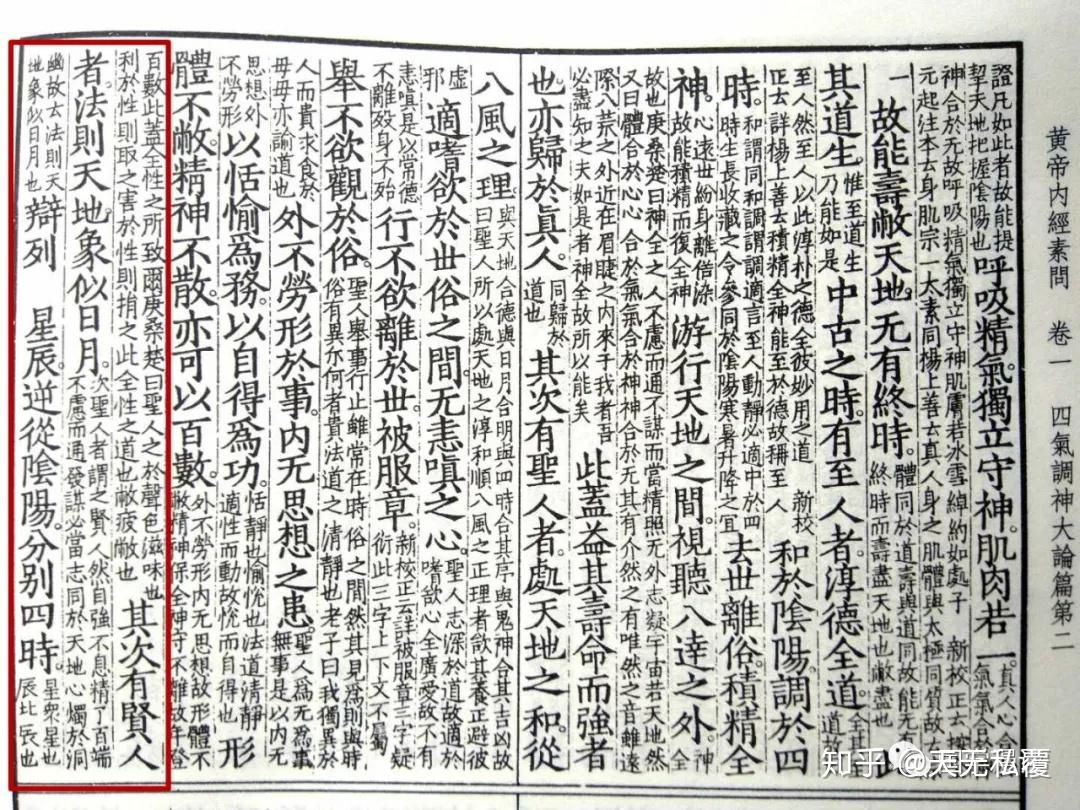 黄帝内經素問 卷一 四氣調神大論篇第二
證凡如此者故能提
挈天地把握陰陽也
呼吸精氣獨立守神肌肉若一
真人心合
氣氣合
神合於无故呼吸精氣獨立守神肌膚若冰雪綽約如處子 新校正云按
元起注本云身肌宗一太素同楊上善云真人身之肌體與太極同質故
一
故能壽敝天地无有終時
體同於道壽與道同故能无有
終時而壽盡天地也敝盡也
此
其道生
惟至道生
乃能如是
中古之時有至人者淳德全道
全其
道
至人然至人以此淳朴之德全彼妙用之道 新校
正云詳楊上善云積精全神能至於德故稱至人
和於陰陽調於四
時
和謂同和調謂調適言至人動靜必適中於四
時生長收藏之令參同於陰陽寒暑升降之宜
去世離俗積精全
神
心遠世紛身離俗染
故能積精而復全神
游行天地之間視聽八達之外
神
全
故也庚桑楚曰神全之人不慮而通不謀而當精照无外志凝宇宙若天地然
又曰體合於心心合於氣氣合於神神合於无其有介然之有唯然之音雖遠
際八荒之外近在眉睫之内來于我者吾
必盡知之夫如是者神全故所以能矣
此蓋益其壽命而強者
也亦歸於真人
同歸於
道也
其次有聖人者處天地之和從
八風之理
與天地合德與日月合明與四時合其序與鬼神合其吉凶故
曰聖人所以處天地之淳和順八風之正理者欲其養正避彼
虛
邪
適嗜欲於世俗之間无恚嗔之心
聖人志深於道故適於
嗜欲心全廣愛故不有
恚嗔是以常德
不離歿身不殆
行不欲離於世被服章
新校正云詳被服章三字疑
衍此三字上下文不屬
舉不欲觀於俗
聖人舉事行止雖常在時俗之間然其見爲則與時
俗有異尒何者貴法道之清靜也老子曰我獨異於
人而貴求食於
母母亦諭道也
外不勞形於事内无思想之患
聖人爲无爲事
無事是以内无
思想外
不勞形
以恬愉爲務以自得爲功
恬靜也愉悅也法道清靜
適性而動故悅而自得也
形
體不敝精神不散亦可以百數
外不勞形内无思想故形體不
敝精神保全神守不離故年登
百數此蓋全性之所致爾庚桑楚曰聖人之於聲色滋味也
利於性則取之害於性則捐之此全性之道也敝疲敝也
其次有賢人
者法則天地象似日月
次聖人者謂之賢人然自強不息精了百端
不慮而通發謀必當志同於天地心燭於洞
幽故云法則天
地象似日月也
辯列 星辰逆從陰陽分别四時
星衆星也
辰北辰也
知乎 @天无私覆